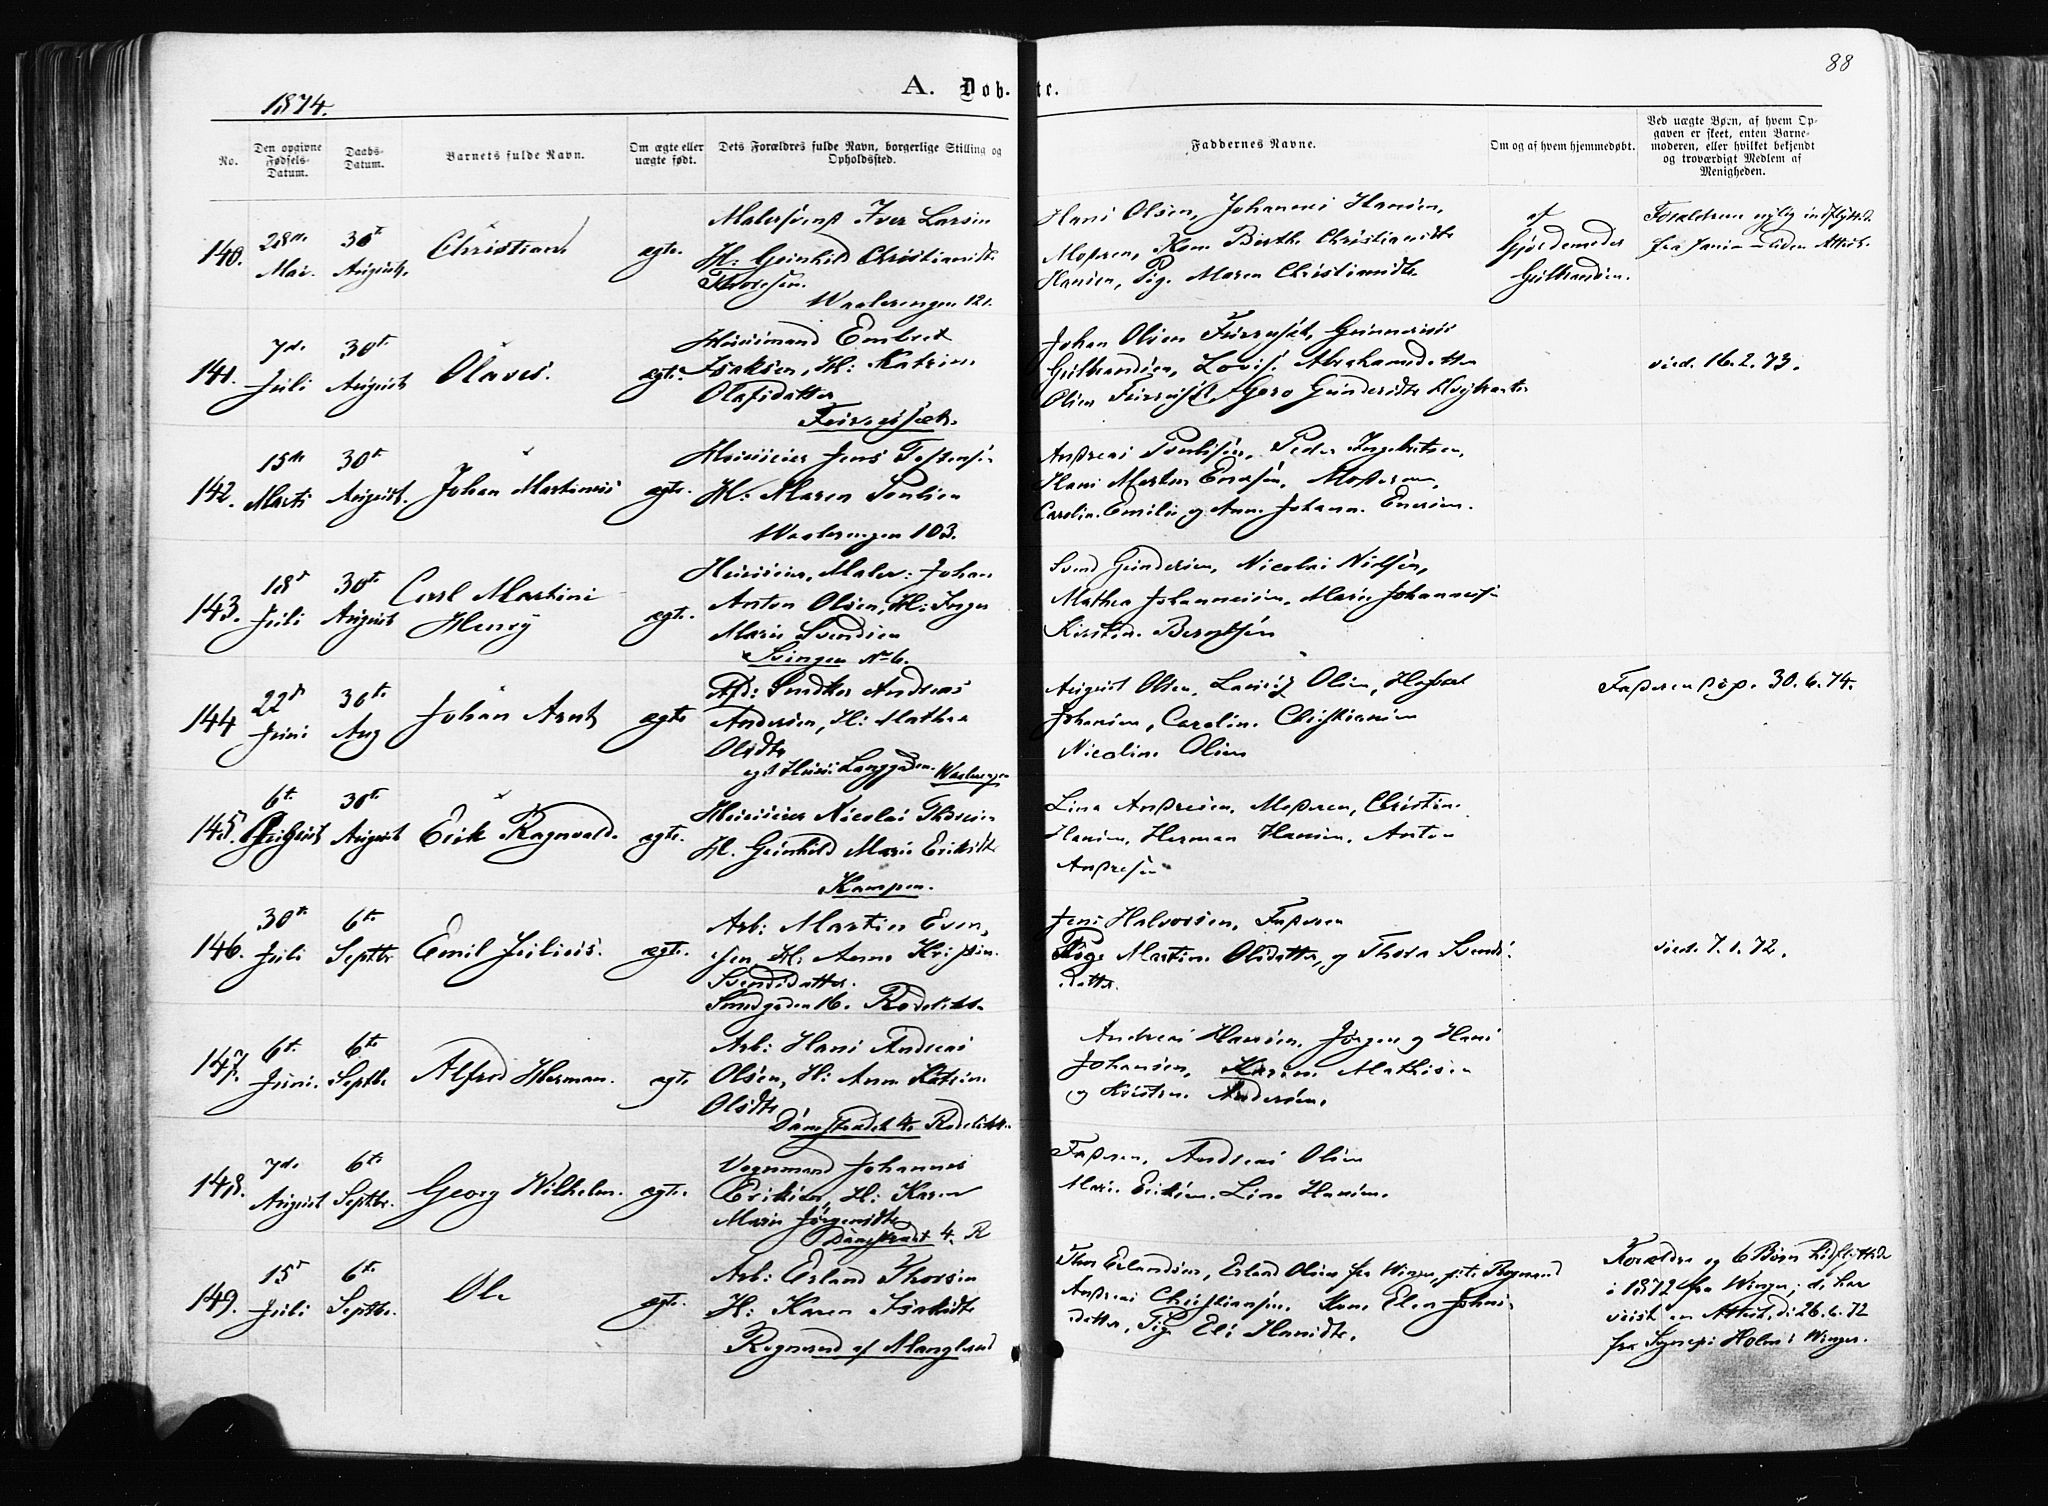 88
1874.
A. Døb- te.
No.
Den opgivne Fødsels-Datum.
Daabs-Datum.
Barnets fulde Navn.
Om ægte eller uægte født.
Dets Forældres fulde Navn, borgerlige Stilling og Opholdssted.
Faddernes Navne.
Om og af hvem hjemmedøbt.
Ved uægte Børn, af hvem Opgaven er skeet, enten Barnemoderen, eller hvilket bekjendt og troværdigt Medlem af Menigheden.
140. 28de Mai. 30te August. Christian ægte.
Malersvend Iver Larsen
H: Gunhild Christiansdtr
Thoresen.
Waalerengen 121.
Hans Olsen, Johannes Hansen,
Moderen, Kone Berthe Christiansdtr
Hansen, Pige Maren Christiansdtr
af
Gjordemoder
Gulbrandsen.
Forældrene nylig indflyttede
141. 7de Juli 30te August Olaves. ægte.
Huusmand Embret
Isaksen, H: Katrine
Olafsdatter
Johan Olsen
Gulbrandsen, Lovise Abrahamsdatter
Olsen
vied. 16.2.73.
142. 15de Marts 30te August. Johan Martinius ægte.
Huuseier Jens
H: Maren Poulsen
Waalerengen 103.
Andreas Poulsen, Peder Ingebretsen,
Hans Martin Enersen, Moderen,
Caroline Emilie og Anne Johanne Enersen.
143. 18de Juli 30te August Carl Martin
Henry ægte.
Huuseier, Maler: Johan
Anton Olsen, H: Inger
Marie Svendsen
Svingen No 6.
Svend Gundersen, Nicolai Nielsen,
Mathea Johannesen, Marie Johannesen
Kirstine Berntsen
144 22de Juni 30te Aug Johan Arnt ægte
Afd: Snedker Andreas
Andersen, H: Mathea
Olsdtr
eget Huus Langgaden. Waalerengen
August Olsen, Lauritz Olsen,
Johansen, Caroline Christiansen
Nicoline Olsen
Faderen død. 30.6.74.
145. 6te August 30te August Erik Ragnvald. ægte.
Huuseier Nicolai Thoresen
H. Gunhild Marie Eriksdtr
Kampen.
Lina Andresen, Moderen, Christine
Hansen, Herman Hansen, Anton
Andresen
146. 30te Juli 6te Septbr. Emil Julius. ægte.
Arb: Martin Even-
sen, H: Anne Kristine
Svendsdatter.
Smedgaden 16. Rodeløkken
Jens Halvorsen, Faderen
Pige Martine Olsdatter, og Thora Svends-
datter.
vied. 7.1.72.
147. 6te Juni. 6te Septbr Alfred Herman. ægte
Arb: Hans Andreas
Olsen, H: Anne Katrine
Olsdtr
Damstredet 4. Rodeløkken
Andreas Hansen, Jørgen og Hans
Johansen, Karen Mathisen
og Kirstine Andersen.
148. 7de August 6te Septbr. Georg Wilhelm. ægte.
Vognmand Johannes
Eriksen, H: Karen
Marie Jørgensdtr
Damstredet 4. R
Faderen, Andreas Olsen
Marie Eriksen. Lina Hansen.
149. 15de Juli 6te Septbr. Ole ægte.
Arb: Erland Thorsen
H: Karen Isaksdtr
Rognerud af Manglerud
Thor Erlandsen, Erland Olsen fra Winger, pt: Rognerud
Andreas Christiansen. Kone Elen Johns-
datter, Pig. Eli Hansdtr.
Forældre og 6 Børn tilflyttede
i 1872 fra Winger; de har
viist en Attest, d: 26.6.72
fra Sognepr Holm i Winger.